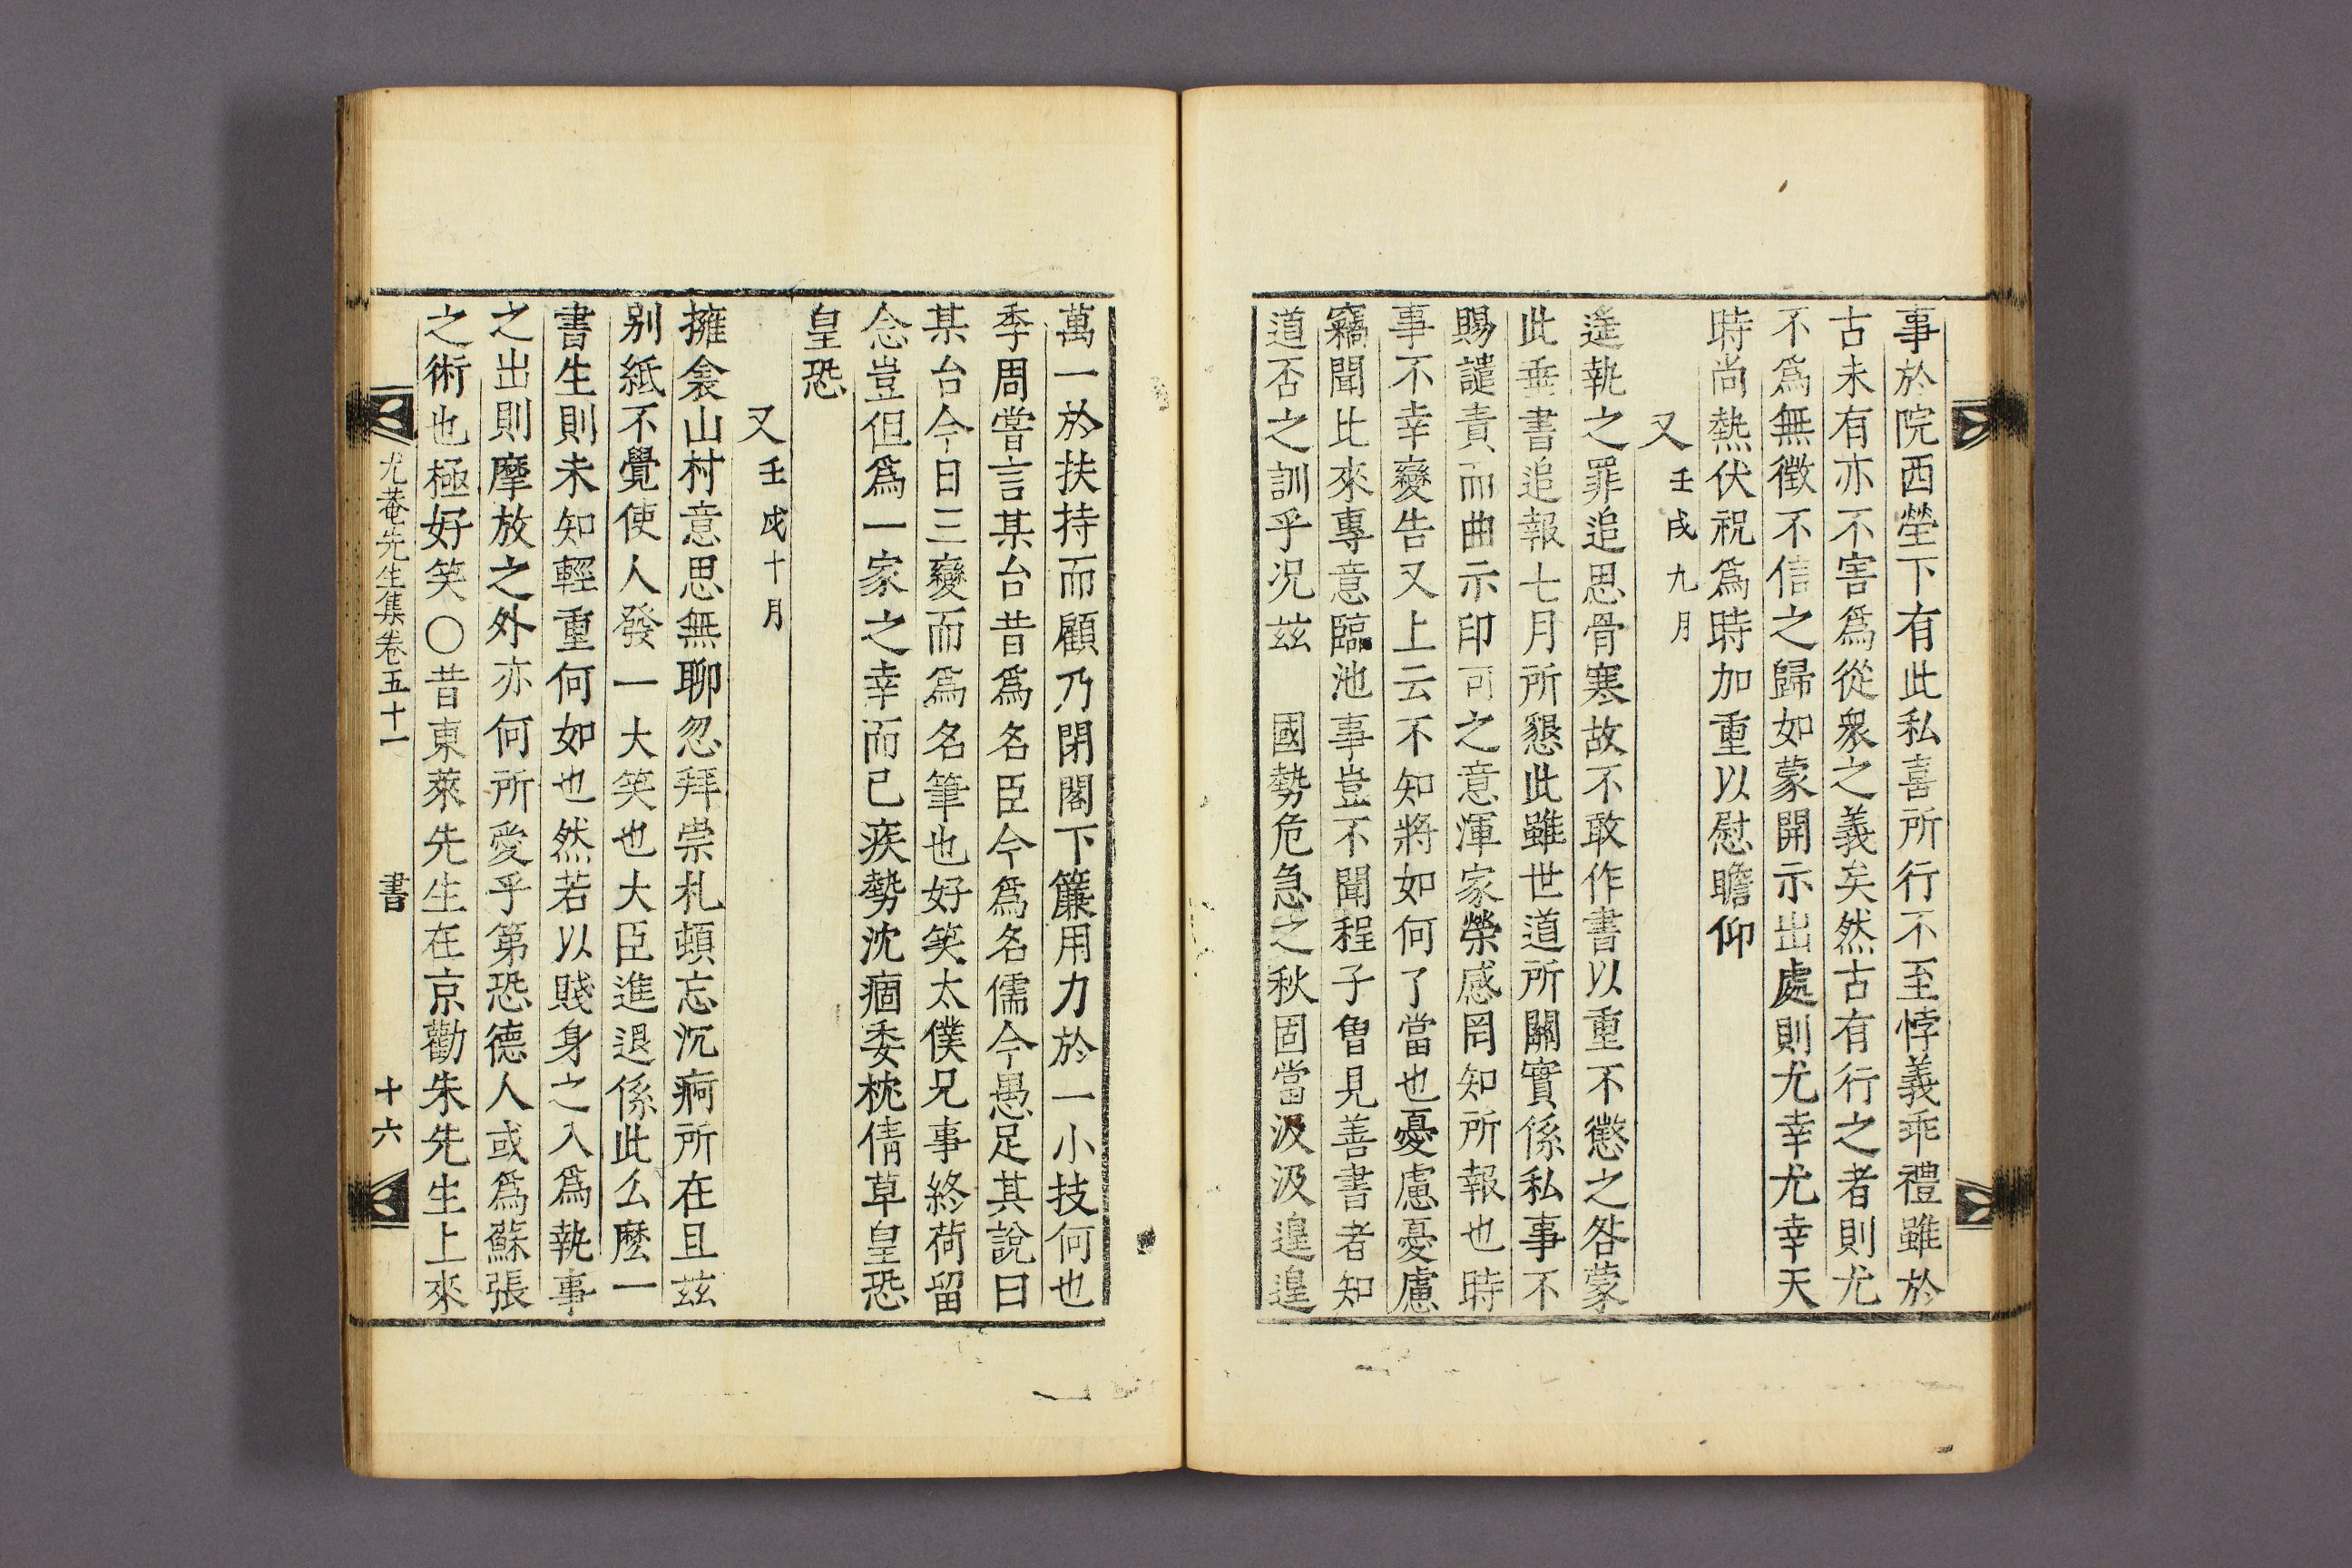 事於院西塋下有此私喜所行不至悖義乖禮雖於
古未有亦不害爲從衆之義矣然古有行之者則尤
不爲無徵不信之歸如蒙開示出處則尤幸尤幸天
時尚熱伏祝爲時加重以慰瞻仰
又 壬戌九月
逆執之罪追思骨寒故不敢作書以重不懲之咎蒙
此垂書追報七月所懇此雖世道所關實係私事不
賜譴責而曲示印可之意渾家榮感罔知所報也時
事不幸變告又上云不知將如何了當也憂慮憂慮
竊聞比來專意臨池事豈不聞程子曾見善書者知
道否之訓乎况玆 國勢危急之秋固當汲汲遑遑
萬一於扶持而顧乃閉閣下簾用力於一小技何也
季周嘗言某台昔爲名臣今爲名儒今愚足其說曰
某台今日三變而爲名筆也好笑太僕兄事終荷留
念豈但爲一家之幸而已疾勢沈痼委枕倩草皇恐
皇恐
又 壬戌十月
擁衾山村意思無聊忽拜崇札頓忘沉痾所在且玆
別紙不覺使人發一大笑也大臣進退係此么麽一
書生則未知輕重何如也然若以賤身之入爲執事
之出則摩放之外亦何所愛乎第恐德人或爲蘇張
之術也極好笑○昔東萊先生在京勸朱先生上來
尤菴先生集卷五十一 書 十六